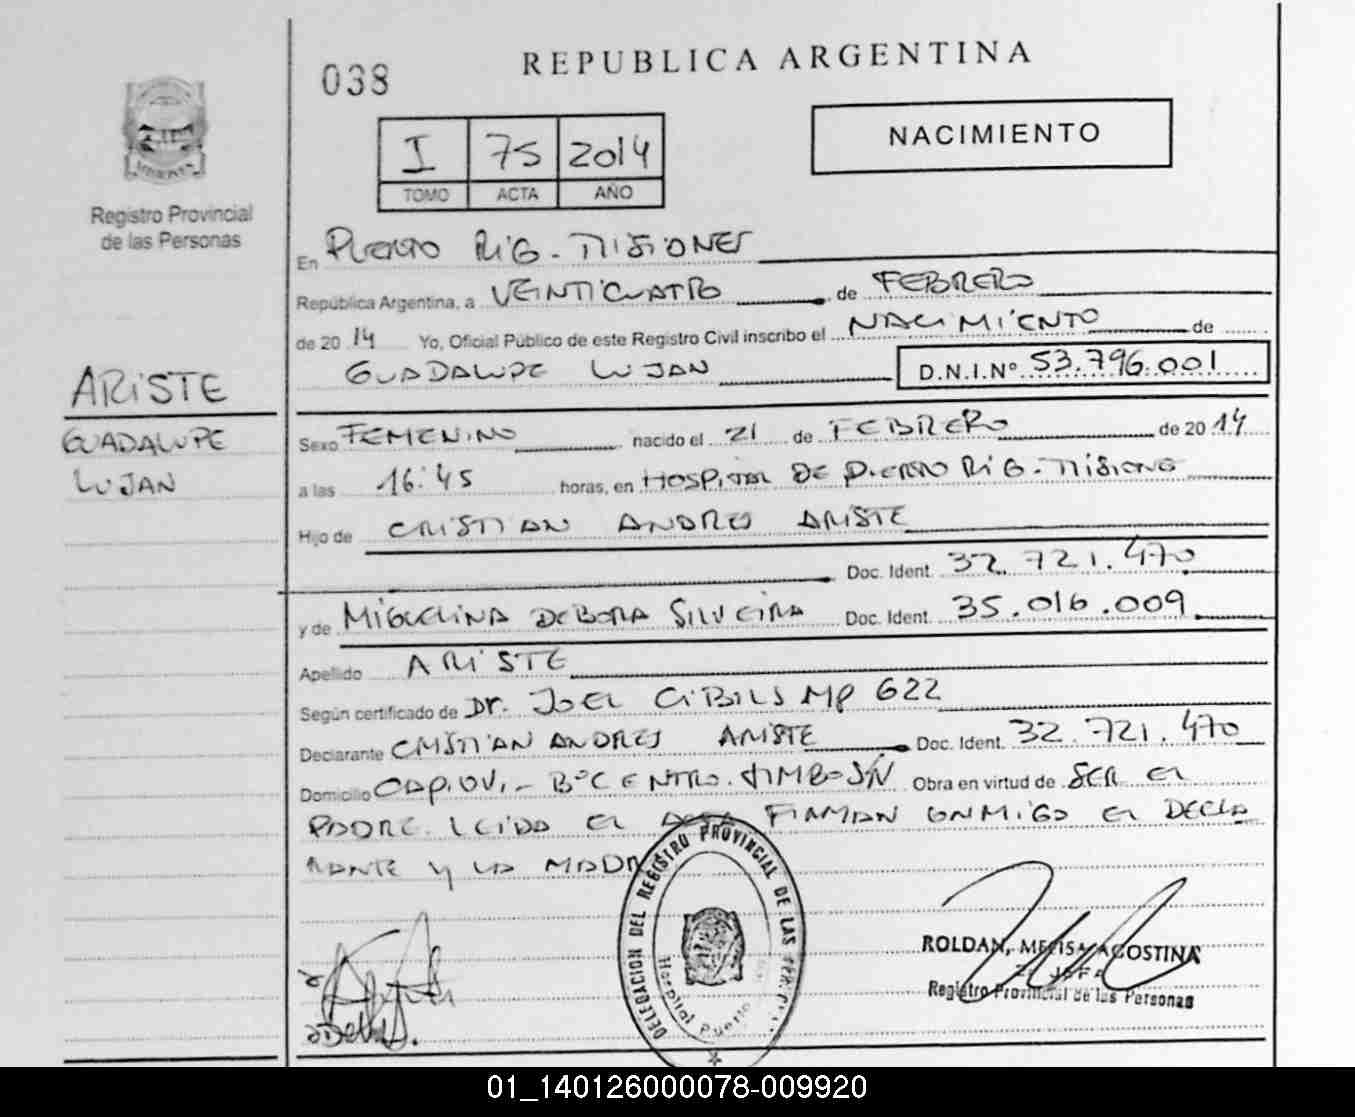 038
REPUBLICA ARGENTINA
I 75 2014
TOMO ACTA AÑO
NACIMIENTO
MISIONES
Registro Provincial
de las Personas
En PUERTO RICO - MISIONES
República Argentina, a VEINTICUATRO de FEBRERO
de 2014 Yo, Oficial Público de este Registro Civil inscribo el NACIMIENTO de
GUADALUPE LUJAN D.N.I.Nº 53.796.001
ARISTE
GUADALUPE
LUJAN
Sexo FEMENINO nacido el 21 de FEBRERO de 2014
a las 16:45 horas, en HOSPITAL DE PUERTO RICO - MISIONES
Hijo de CRISTIAN ANDRES ARISTE
Doc. Ident. 32.721.470
y de MIGUELINA DEBORA SILVEIRA Doc. Ident. 35.016.009
Apellido ARISTE
Según certificado de Dr. JOEL CIBILS MP 622
Declarante CRISTIAN ANDRES ARISTE Doc. Ident. 32.721.470
Domicilio CAPIOVI - Bº CENTRO. TIMBO S/N Obra en virtud de SER EL
PADRE. LEIDA EL ACTA FIRMAN CONMIGO EL DECLA
RANTE Y LA MADRE
DELEGACION DEL REGISTRO PROVINCIAL DE LAS
Hospital Puerto
ROLDAN, MELISA AGOSTINA
JEFA
Registro Provincial de las Personas
01_140126000078-009920